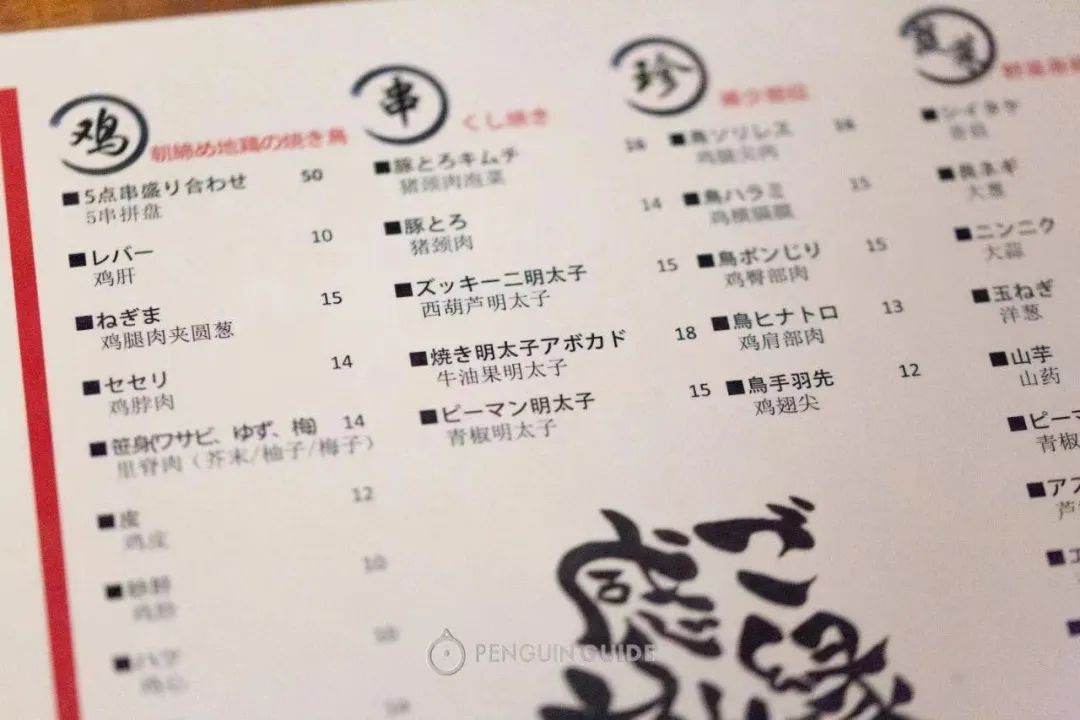 鸡
朝締め地鶏の焼き鳥
■5点串盛り合わせ 50
5串拼盘
■レバー 10
鸡肝
■ねぎま 15
鸡腿肉夹圆葱
■セセリ 14
鸡脖肉
■笹身(ワサビ、ゆず、梅) 14
里脊肉（芥末/柚子/梅子）
■皮 12
鸡皮
■砂肝 10
鸡胗
■ハツ 10
鸡心
串
くし焼き
■豚とろキムチ 16
猪颈肉泡菜
■豚とろ 14
猪颈肉
■ズッキーニ明太子 15
西葫芦明太子
■焼き明太子アボカド 18
牛油果明太子
■ピーマン明太子 15
青椒明太子
珍
希少部位
■鳥ソリレス 16
鸡腿尖肉
■鳥ハラミ 15
鸡横膈膜
■鳥ボンじり 15
鸡臀部肉
■鳥ヒナトロ 13
鸡肩部肉
■鳥手羽先 12
鸡翅尖
■シイタケ
香菇
■長ネギ
大葱
■ニンニク
大蒜
■玉ねぎ
洋葱
■山芋
山药
■ピーマ
青椒
■アス
芦
■エ
PENGUIN GUIDE